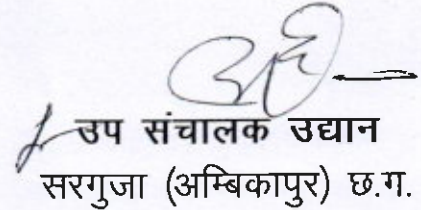 उप संचालक उद्यान
सरगुजा (अम्बिकापुर) छ.ग.